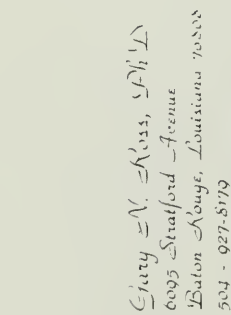 Gary N. Ross, Ph.D
6095 Stratford Avenue
Baton Rouge, Louisiana 70808
504 - 927-8179